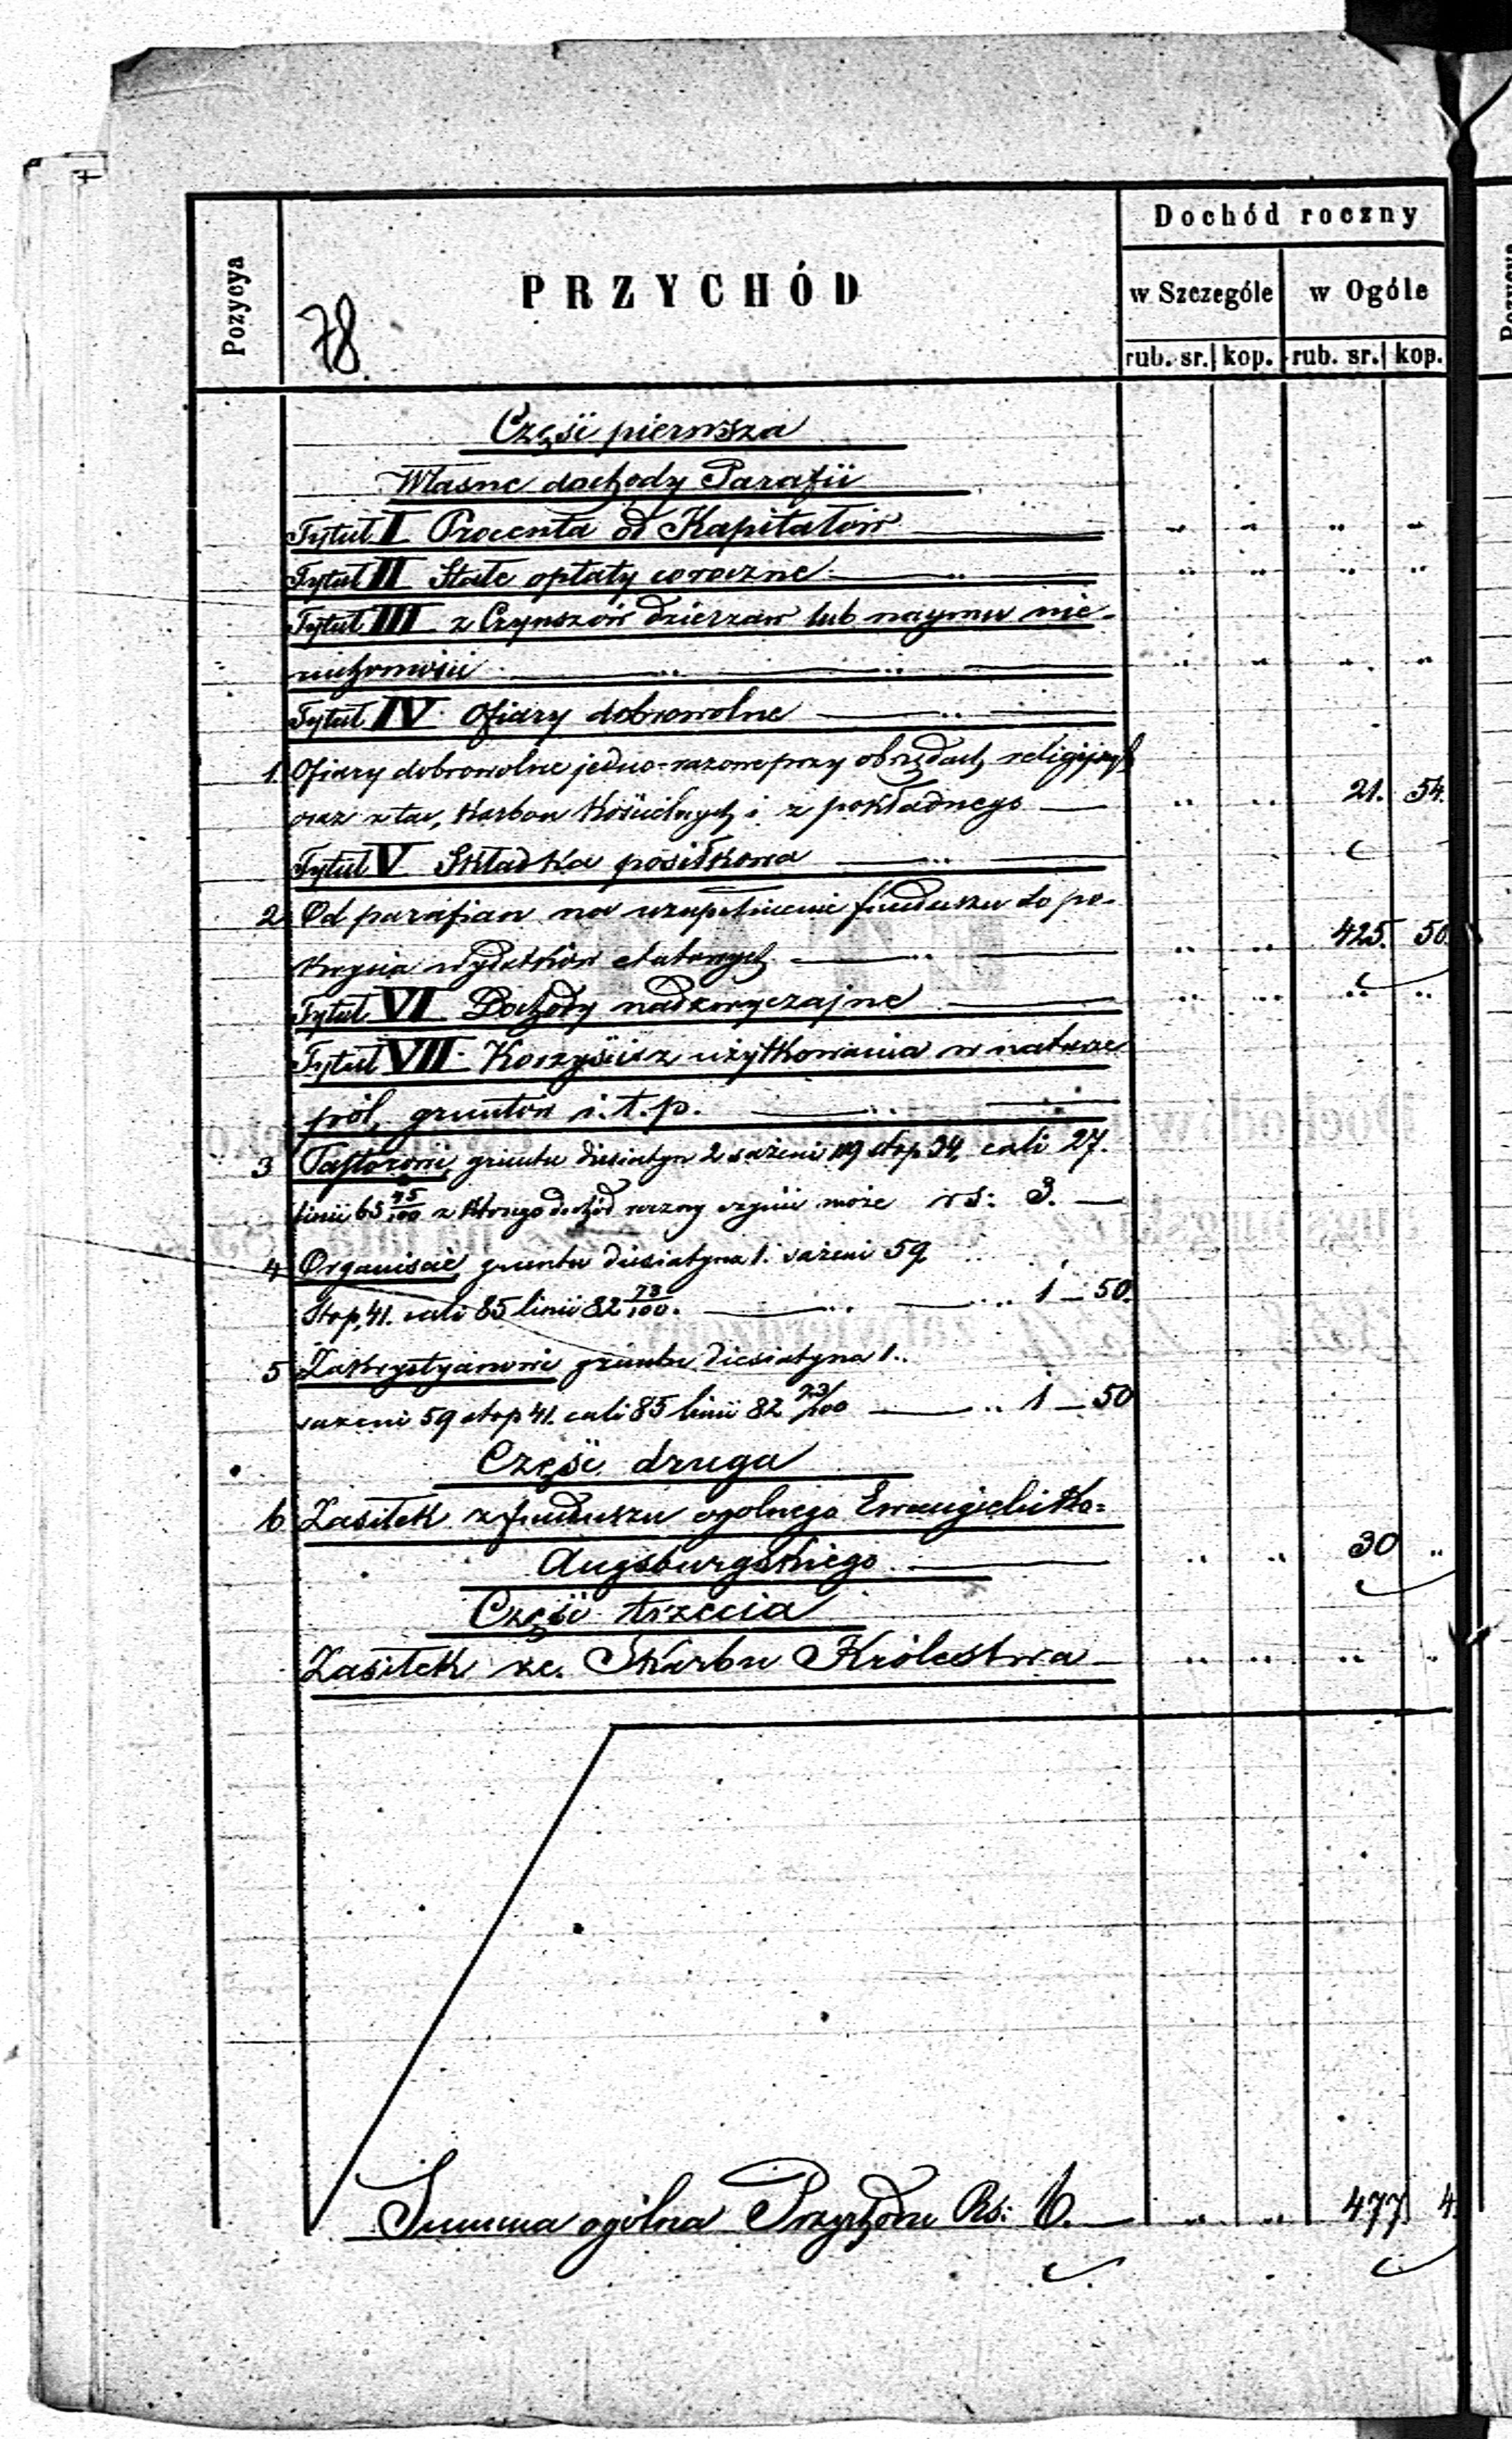 Pozycya
78
PRZYCHÓD
Dochód roczny
w Szczególe w Ogóle
rub. sr. kop. rub. sr. kop.
Część pierwsza
Własne dochody Parafii
Tytuł I Procenta od Kapitałów
Tytuł II Stałe opłaty coroczne
Tytuł III z Czynszów dzierzaw lub naymu nie-
ruchomości
Tytuł IV Ofiary dobrowolne
1. Ofiary dobrowolne jedno-razowe przy obrzędach religijnych
oraz z tac, Karbon Kościelnych i z pokładnego 21. 54.
Tytuł V Składka posiłkowa
2 Od parafian na uzupełnienie funduszu do po-
krycia wydatków etatowych 425. 50.
Tytuł VI Dochody nadzwyczajne
Tytuł VII Korzyści z użytkowania w naturze
pól, gruntów i.t.p.
3 Pastorowi gruntu diesiatyn 2 sażeni 119 stop 34, cali 27.
linii 65 45/100 z którego dochód roczny czynić może rs: 3. —
4 Organiscie gruntu diesiatyna 1. sażeni 59
Stop 41. cali 85 linii 82 73/100. 1 — 50.
5 Zakrystyanowi gruntu diesiatyna 1.
sażeni 59 stop 41. cali 85 linii 82 73/100 1 — 50
Część druga
6 Zasiłek z funduszu ogolnego Ewangelicko=
Augsburgskiego 30 "
Część trzecia
Zasiłek ze Skarbu Królestwa
Summa ogólna Przychodu Rs: 6. — 477 4